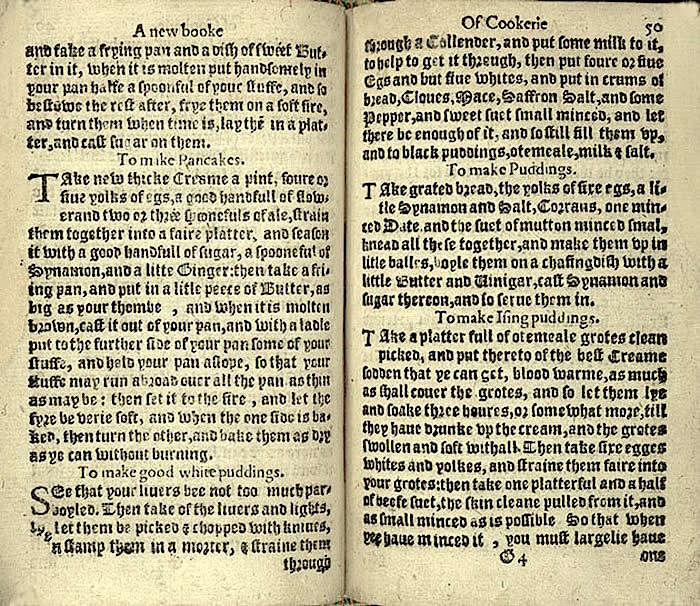 A new booke
and take a frying pan and a dish of sweet But-
ter in it, when it is molten put handsomely in
your pan halfe a spoonful of your stuffe, and so
bestowe the rest after, frye them on a soft fire,
and turn them when time is, lay thē in a plat-
ter, and cast sugar on them.
To make Pancakes.
TAke new thicke Creame a pint, foure or
fiue yolks of egs, a good handfull of flow-
er and two or three spoonefuls of ale, strain
them together into a faire platter, and season
it with a good handfull of sugar, a spooneful of
Synamon, and a litte Ginger: then take a fri-
ing pan, and put in a litle peece of Butter, as
big as your thombe , and when it is molten
brown, cast it out of your pan, and with a ladle
put to the further side of your pan some of your
stuffe, and hold your pan aslope, so that your
stuffe may run abroad ouer all the pan as thin
as may be: then set it to the fire , and let the
fyre be verie soft, and when the one side is ba-
ked, then turn the other, and bake them as dry
as ye can without burning.
To make good white puddings.
SEe that your liuers bee not too much par-
boyled. Then take of the liuers and lights,
let them be picked & chopped with kniues,
stamp them in a morter, & straine them
through
Of Cookerie 50
through a Collender, and put some milk to it,
to help to get it through, then put foure or fiue
Egs and but fiue whites, and put in crums of
bread, Cloues, Mace, Saffron Salt, and some
Pepper, and sweet suet small minced, and let
there be enough of it, and so still fill them vp,
and to black puddings, otemeale, milk & salt.
To make Puddings.
TAke grated bread, the yolks of sixe egs, a li-
tle Synamon and Salt, Corrans, one min-
ced Date and the suet of mutton minced smal,
knead all these together, and make them vp in
litle balles, boyle them on a chafingdish with a
little Butter and Uinigar, cast Synamon and
sugar thereon, and so serue them in.
To make Ising puddings.
TAke a platter full of otemeale grotes clean
picked, and put thereto of the best Creame
sodden that ye can get, blood warme, as much
as shall couer the grotes, and so let them lye
and soake three houres, or somewhat more, till
they haue drunke vp the cream, and the grotes
swollen and soft withall. Then take sixe egges
whites and yolkes, and straine them faire into
your grotes: then take one platterful and a half
of beefe suet, the skin cleane pulled from it, and
as small minced as is possible So that when
yee haue minced it , you must largelie haue
G 4 one